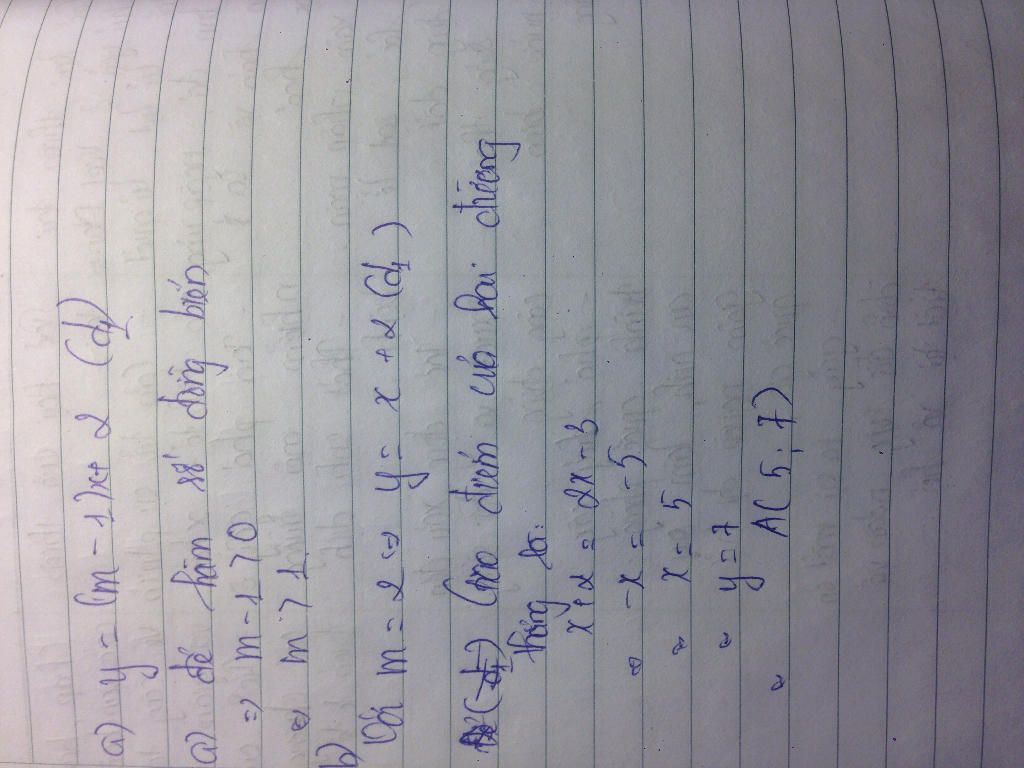 a) y = (m - 1)x + 2 (d₁)
a) để hàm số đồng biến
=> m - 1 > 0
<=> m > 1
b)
Với m = 2 => y = x + 2 (d₁)
Giao điểm của hai đường
thẳng là:
x + 2 = 2x - 3
<=> -x = -5
<=> x = 5
<=> y = 7
<=> A(5; 7)